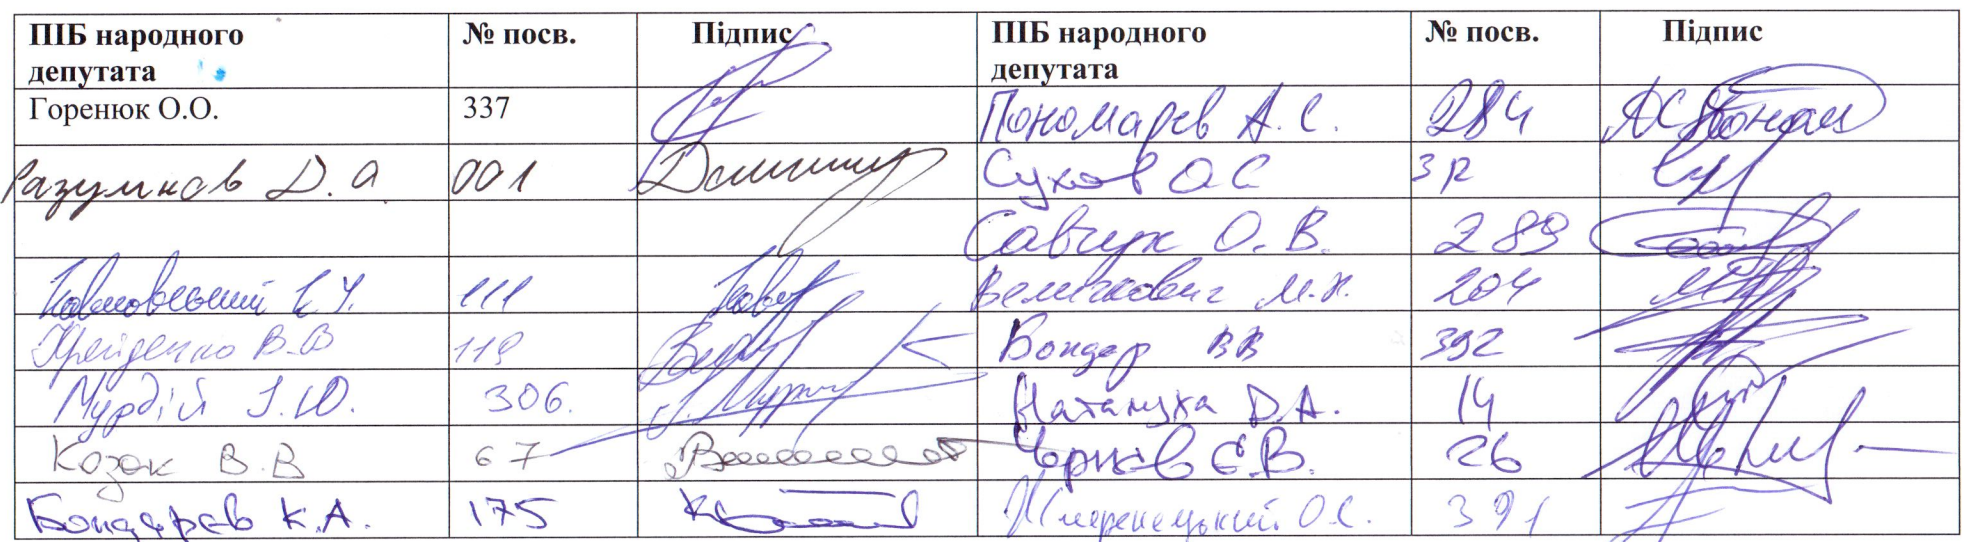 ПІБ народного депутата № посв. Підпис ПІБ народного депутата № посв. Підпис
Горенюк О.О. 337 Пономарев А.С. 284
Разумков Д.О 001 Сухов О С 32
Савчук О.В. 289
К.У. 111 Величкович М.Н. 204
Крейденко В.В 119 Бондар ВВ 392
Мурдій І.Ю. 306. Наталуха Д.А. 14
Козак В.В 67 Чернєв Є.В. 26
Бондарев К.А. 175 О.С. 391